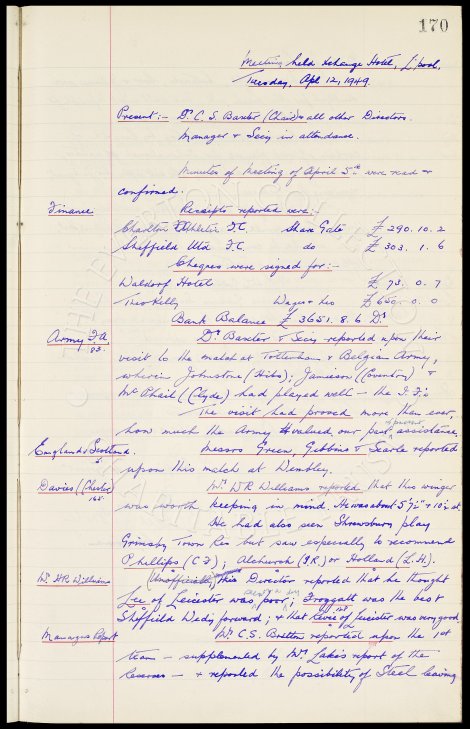 170
Meeting held Xchange Hotel, L'pool,
Tuesday, Apl 12, 1949.
Present:- Dr. C. S. Baxter (Chair) & all other Directors.
Manager & Secy in attendance.
Minutes of Meeting of April 5th were read &
confirmed.
Finance Receipts reported were:-
Charlton Athletic F.C. Share Gate £ 290. 10. 2
Sheffield Utd F.C. do £ 303. 1. 6
Cheques were signed for:-
Waldorf Hotel £ 73. 0. 7
Theo Kelly Wages & Les £ 650. 0. 0
Bank Balance £ 3651. 8. 6 Dr
Army F.A. Dr. Baxter & Secy reported upon their
visit to the match at Tottenham v Belgian Army,
wherein Johnstone (Hibs); Jamieson (Coventry) &
McPhail (Clyde) had played well - the I.F.s
The visit had proved more than ever,
how much the Army valued our past & present assistance.
England v Scotland. Messrs Green, Gibbins & Searle reported
upon this match at Wembley.
Davies (Chester) Mr. W R Williams reported that this winger
165.
was worth keeping in mind. He was about 5' 7½" & 10½ st.
He had also seen Shrewsbury play
Grimsby Town Res but saw especially to recommend
Phillips (C F); Alchurch (I R.) or Holland (L.H.).
Mr. W R Williams (Unofficially) this Director reported that he thought
Lee of Leicester was poor; Froggatt was the best
Sheffield Wedy forward; & that Revie of Leicester was very good
Managers Report Mr. C.S. Britton reported upon the 1st
team - supplemented by Mr. Lake's report of the
Reserves - & reported the possibility of Steel leaving